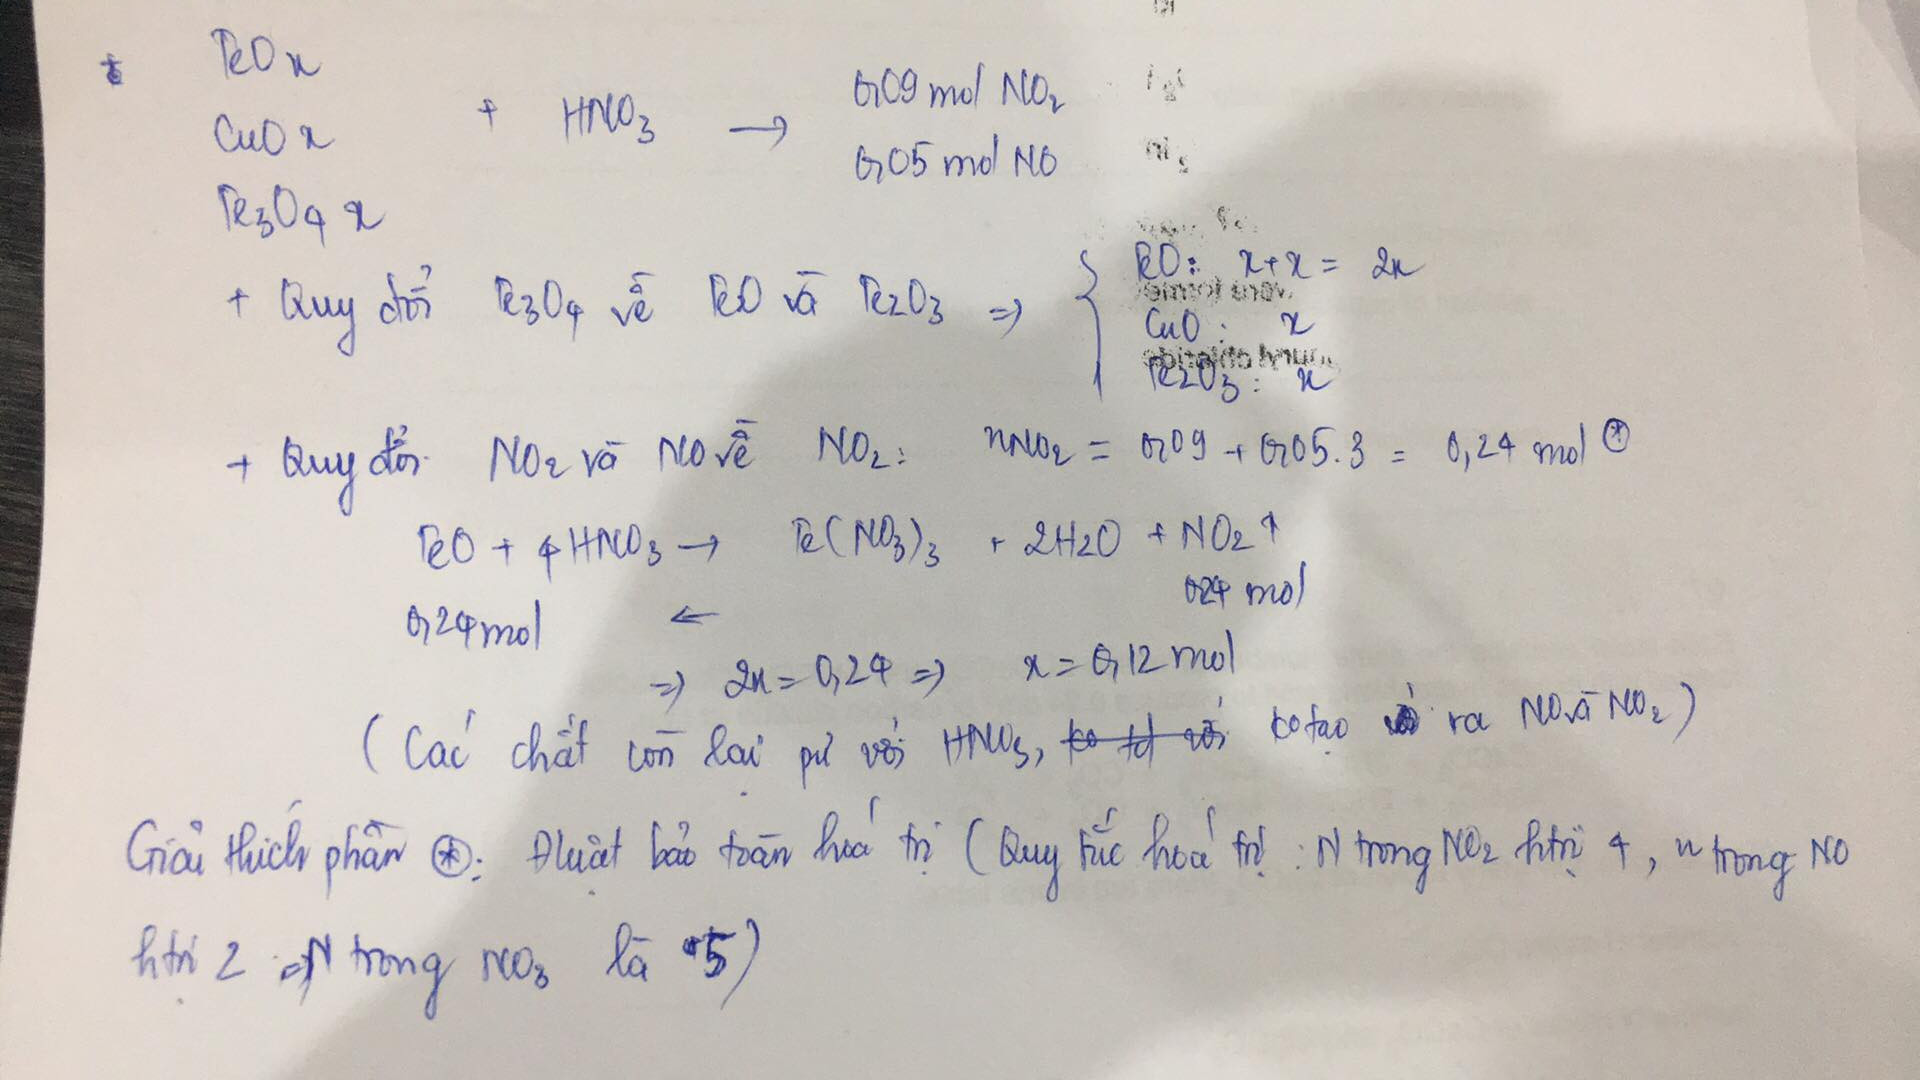 * FeO x
CuO x + HNO3 → 0,09 mol NO2
0,05 mol NO
Fe3O4 x
+ Quy đổi Fe3O4 về FeO và Fe2O3 => { FeO: x+x = 2x
CuO: x
Fe2O3: x
+ Quy đổi NO2 và NO về NO2: nNO2 = 0,09 + 0,05.3 = 0,24 mol (*)
FeO + 4HNO3 → Fe(NO3)3 + 2H2O + NO2↑
0,24 mol ← 0,24 mol
=> 2x = 0,24 => x = 0,12 mol
(Các chất còn lại pư với HNO3, ko tạo ra NO và NO2)
Giải thích phần (*): Đluật bảo toàn hoá trị (Quy tắc hoá trị: N trong NO2 htrị 4, n trong NO
htrị 2 => N trong NO3 là 5)